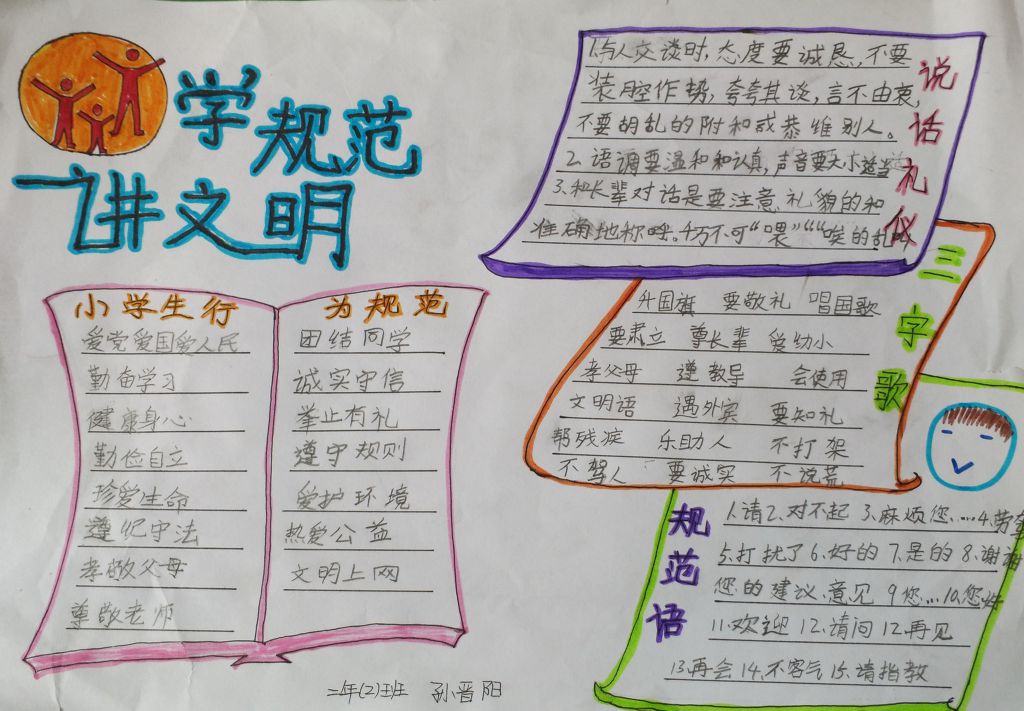 学规范
讲文明
小学生行
爱党爱国爱人民
勤奋学习
健康身心
勤俭自立
珍爱生命
遵纪守法
孝敬父母
尊敬老师
为规范
团结同学
诚实守信
举止有礼
遵守规则
爱护环境
热爱公益
文明上网
二年(2)班 孙晋阳
说话礼仪
1.与人交谈时,态度要诚恳,不要
装腔作势,夸夸其谈,言不由衷,
不要胡乱的附和或恭维别人。
2.语调要温和和认真,声音要大小适当
3.和长辈对话是要注意礼貌的和
准确地称呼。4万不可“喂”““唉的乱叫
三字歌
升国旗 要敬礼 唱国歌
要肃立 尊长辈 爱幼小
孝父母 遵教导 会使用
文明语 遇外宾 要知礼
帮残疾 乐助人 不打架
不骂人 要诚实 不说荒
规范语
1.请2.对不起 3.麻烦您....4.劳驾
5.打扰了6.好的7.是的8.谢谢
您的建议.意见 9您...10.您好
11.欢迎 12.请问12.再见
13.再会14.不客气15.请指教